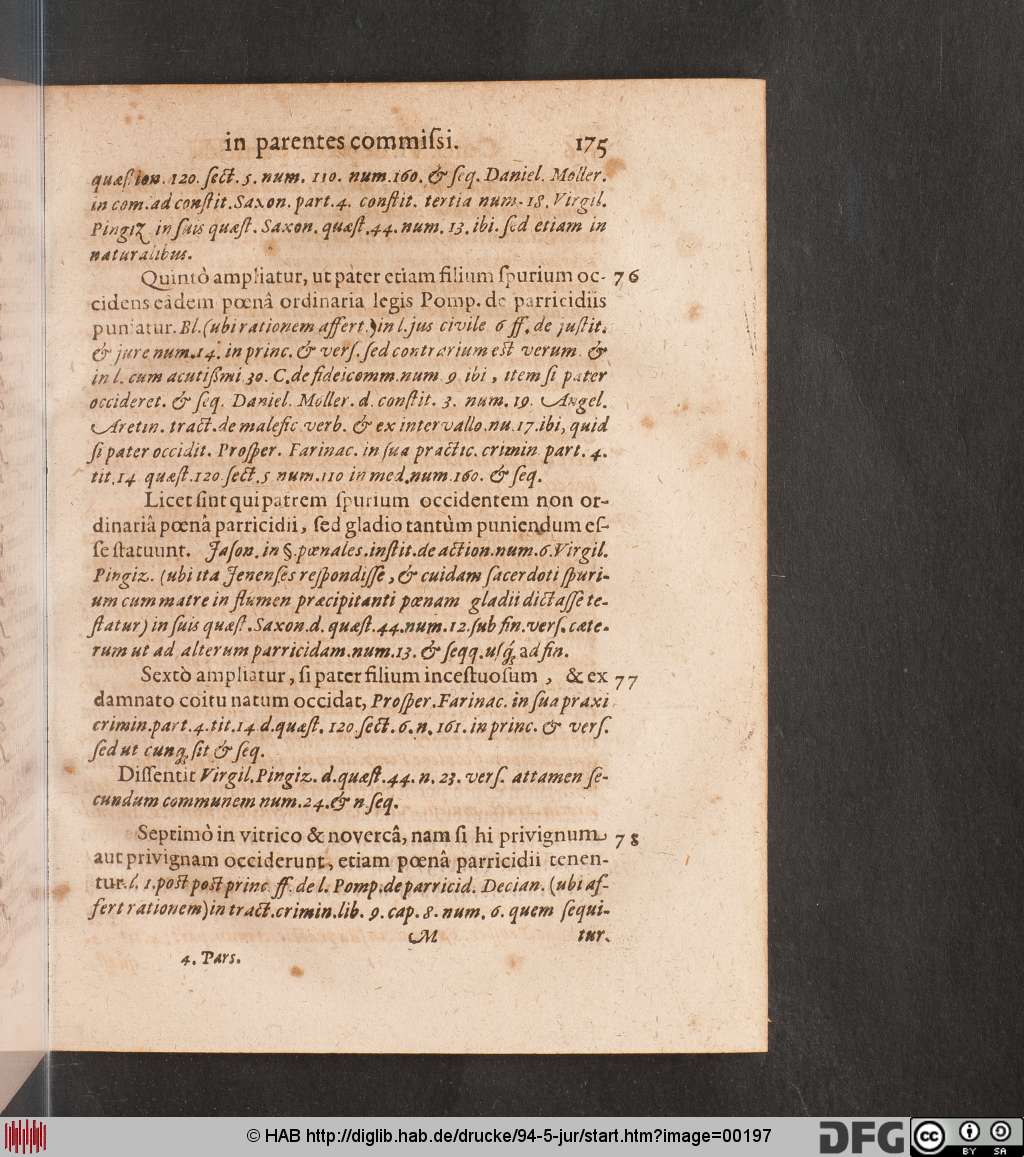 in parentes commiſsi. 175
quæſtion. 120. ſect. 5. num. 110. num. 160. & ſeq. Daniel. Moller.
in com. ad conſtit. Saxon. part. 4. conſtit. tertia num. 18. Virgil.
Pingiz in ſuis quæſt. Saxon. quæſt. 44. num. 13. ibi. ſed etiam in
naturalibus.
Quintò ampliatur, ut pater etiam filium ſpurium oc- 76
cidens eâdem pœnâ ordinaria legis Pomp. de parricidiis
puniatur. Bl. (ubi rationem affert.) in l. jus civile 6 ff. de juſtit.
& jure num. 14. in princ. & verſ. ſed contrarium eſt verum. &
in l. cum acutißmi 30. C. de fideicomm. num 9 ibi, item ſi pater
occideret. & ſeq. Daniel. Moller. d. conſtit. 3. num. 19. Angel.
Aretin. tract. de malefic verb. & ex intervallo. nu. 17. ibi, quid
ſi pater occidit. Proſper. Farinac. in ſua practic. crimin. part. 4.
tit. 14 quæſt. 120 ſect. 5 num. 110 in med. num. 160. & ſeq.
Licet ſint qui patrem ſpurium occidentem non or-
dinariâ pœnâ parricidii, ſed gladio tantùm puniendum eſ-
ſe ſtatuunt. Jaſon. in §. pœnales. inſtit. de action. num. 6. Virgil.
Pingiz. (ubi ita Jenenſes reſpondiſſe, & cuidam ſacerdoti ſpuri-
um cum matre in flumen præcipitanti pœnam gladii dictaſſe te-
ſtatur) in ſuis quæſt. Saxon. d. quæſt. 44. num. 12. ſub fin. verſ. cæte-
rum ut ad alterum parricidam. num. 13. & ſeqq. uſq́ ad fin.
Sextò ampliatur, ſi pater filium inceſtuoſum, & ex 77
damnato coitu natum occidat, Proſper. Farinac. in ſua praxi
crimin. part. 4. tit. 14 d. quæſt. 120 ſect. 6. n. 161. in princ. & verſ.
ſed ut cunq́ ſit & ſeq.
Diſſentit Virgil. Pingiz. d. quæſt. 44. n. 23. verſ. attamen ſe-
cundum communem num. 24. & n. ſeq.
Septimò in vitrico & novercâ, nam ſi hi privignum 78
aut privignam occiderunt, etiam pœnâ parricidii tenen-
tur. l. 1. poſt poſt princ. ff. de l. Pomp. de parricid. Decian. (ubi af-
fert rationem) in tract. crimin. lib. 9. cap. 8. num. 6. quem ſequi-
M tur.
4. Pars.
© HAB http://diglib.hab.de/drucke/94-5-jur/start.htm?image=00197
DFG cc BY SA